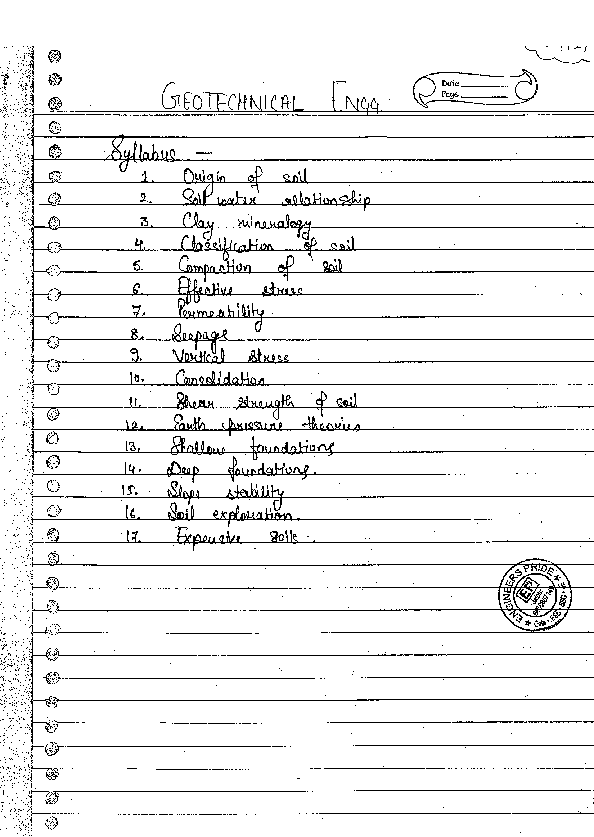 GEOTECHNICAL ENGG
Date
Page
Syllabus —
1. Origin of soil
2. Soil water relationship
3. Clay mineralogy
4. Classification of soil
5. Compaction of soil
6. Effective stress
7. Permeability
8. Seepage
9. Vertical stress
10. Consolidation
11. Shear strength of soil
12. Earth pressure theories
13. Shallow foundations
14. Deep foundations.
15. Slope stability
16. Soil exploration.
17. Expansive soils.
ENGINEERS PRIDE